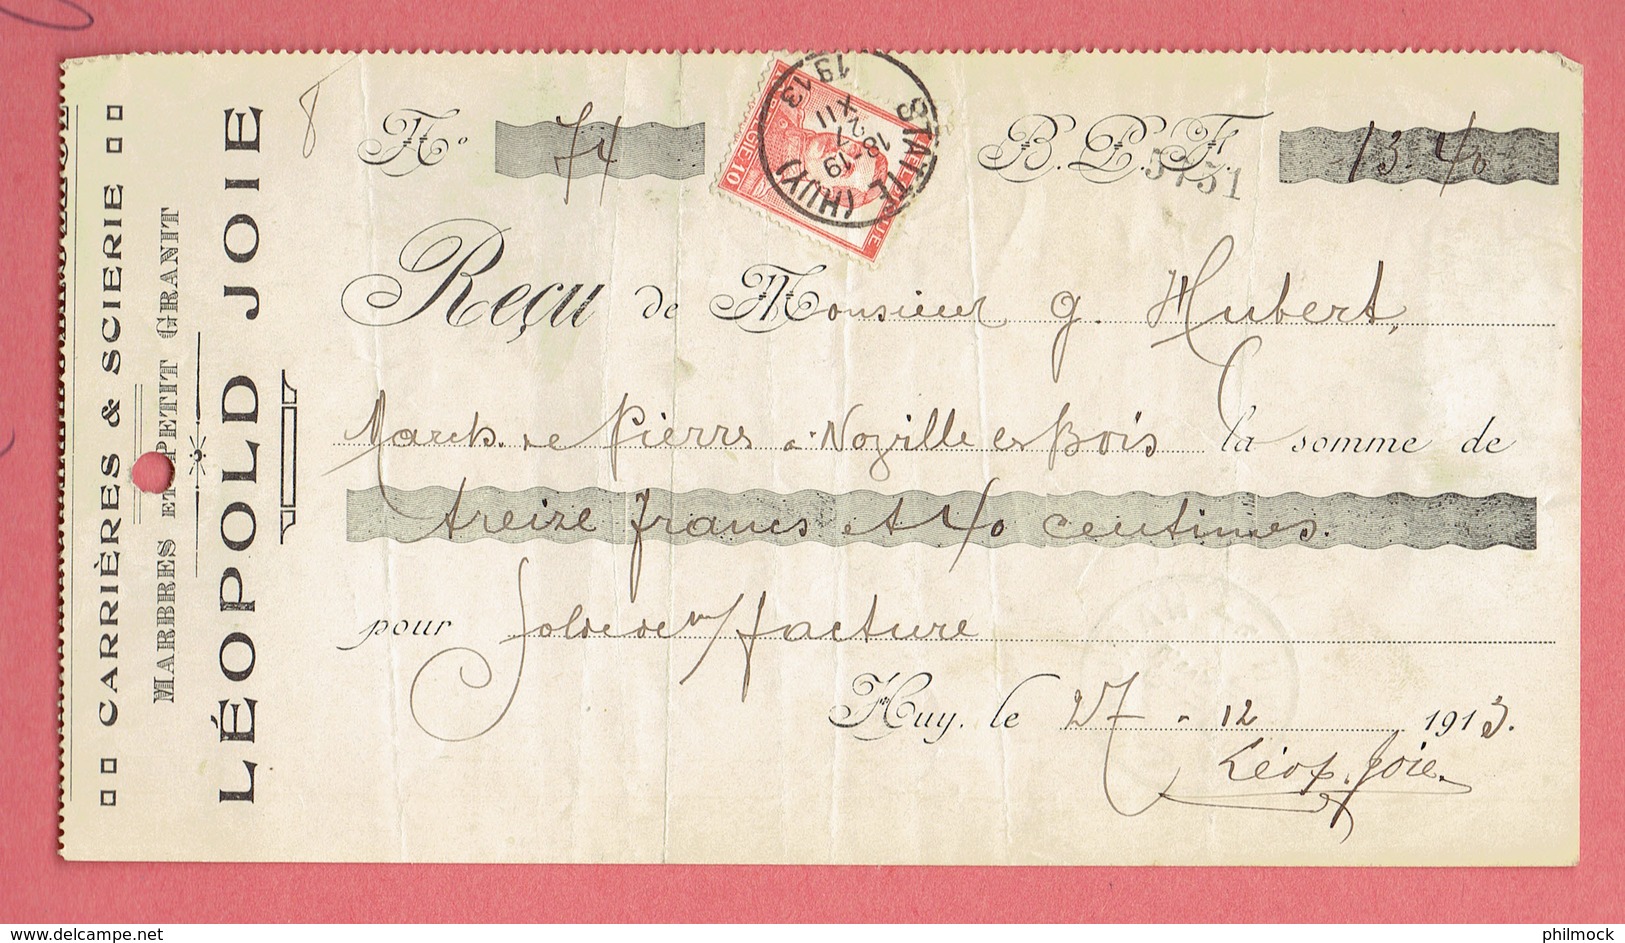 CARRIÈRES & SCIERIE
MARBRES ET PETIT GRANIT
LÉOPOLD JOIE
8
N° 74
B.P.F. 13-40
5731
BELGIQUE BELGIE 10
STATTE (HUY)
18-19
XII
1913
Reçu de Monsieur G. Hubert,
March. de Pierres à Noville les Bois la somme de
treize francs et 40 centimes.
pour Solde de m/facture
Huy, le 27 - 12 1913.
Léop. Joie
delcampe.net
philmock